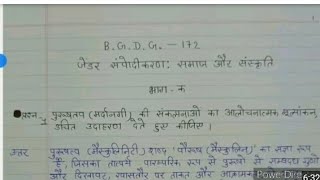 B.G.D.G. - 172
जेंडर संवेदीकरण: समाज और संस्कृति
भाग-क
प्रश्न 1 पुरुषत्व (मर्दानगी) की संकल्पनाओं का आलोचनात्मक मूल्यांकन, उचित उदाहरण देते हुए कीजिए।
उत्तर पुरुषत्व (मैस्कुलिनिटी) शब्द 'पौरुष (मैस्कुलिन)' का संज्ञा रूप
है, जिसका तात्पर्य पारम्परिक रूप से पुरुषों से सम्बद्ध
और दिखावट, खासतौर पर ताकत और
PowerDire
6:32